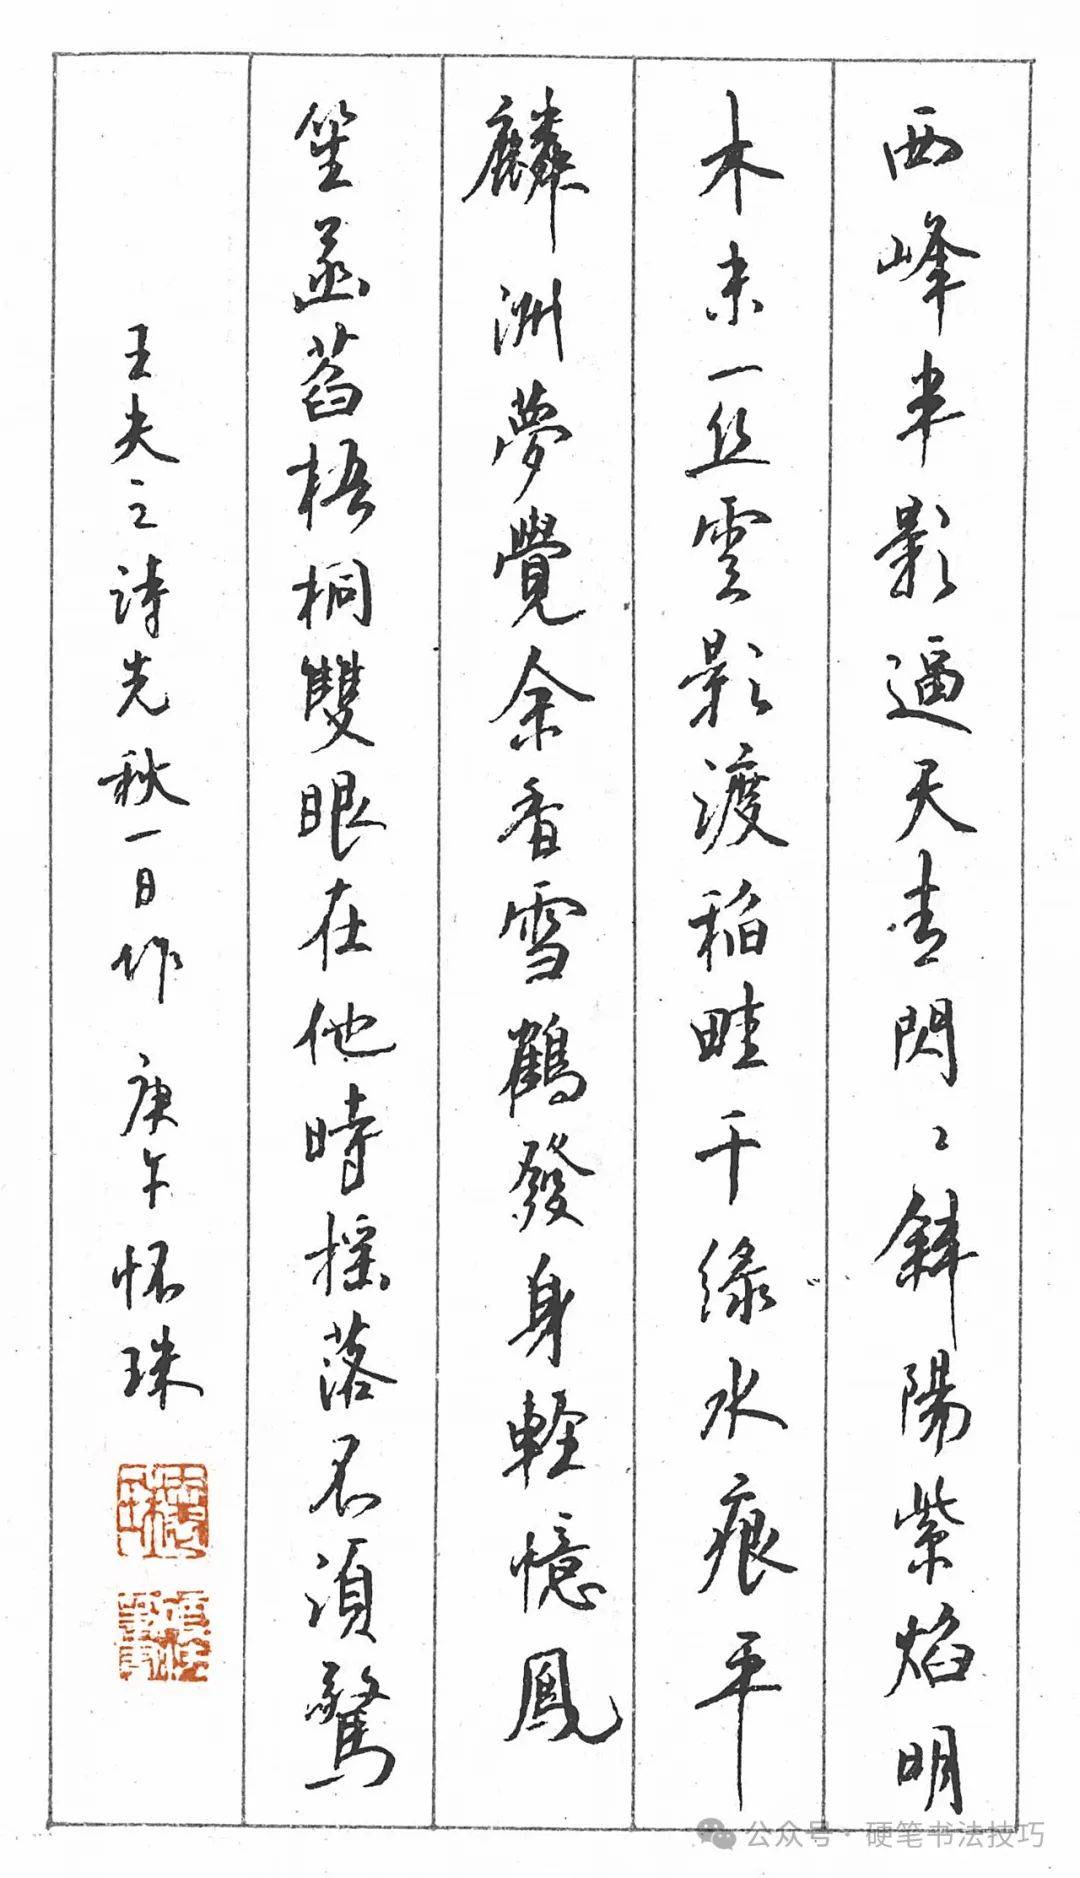 西峰半影逼天青閃〻斜陽紫焰明
木末一丝雲影渡稲畦千緣水痕平
麟洲夢覺余香雪鶴發身輕憶鳳
笙丞萏梧桐雙眼在他時摇落不須驚
王夫之詩先秋一日作 庚午怀珠
公众号·硬笔书法技巧